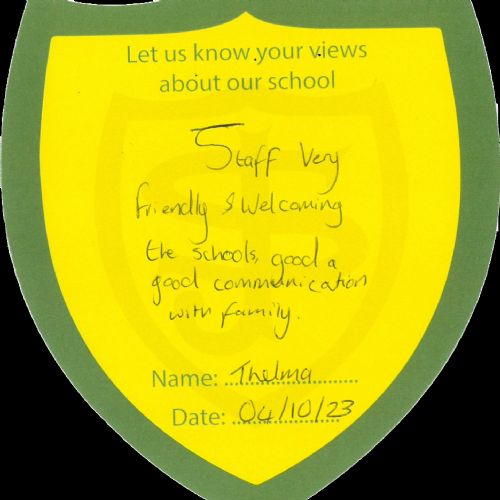 Let us know your views
about our school
Staff Very
friendly & Welcoming
the schools, good a
good communication
with family.
Name: Thelma
Date: 04/10/23